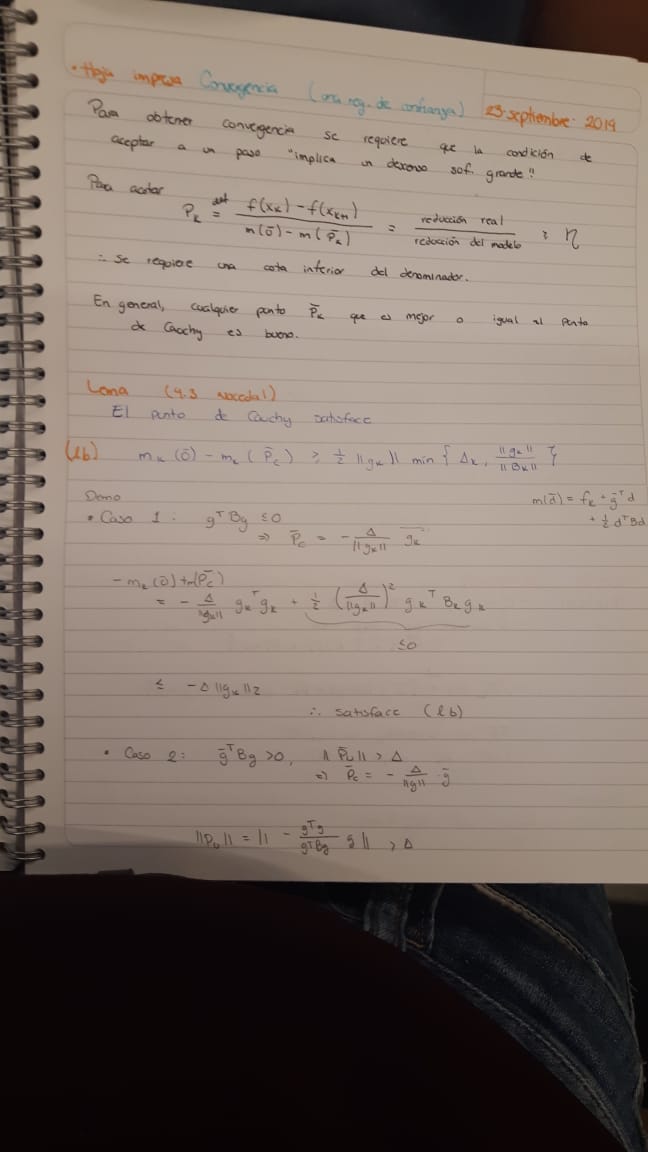 • Hoja impresa Convergencia (una reg. de confianza) 23·septiembre·2019
Para obtener convergencia se requiere que la condición de
aceptar a un paso "implica un descenso suf. grande".
Para acotar
P_k =^def (f(x_k) - f(x_{k+1})) / (m(0̄) - m(P̄_k)) = reducción real / reducción del modelo > η
∴ Se requiere una cota inferior del denominador.
En general, cualquier punto P̄_k que es mejor o igual al punto
de Cauchy es bueno.
Lema (4.3 Nocedal)
El punto de Cauchy satisface
(lb) m_k(0̄) - m_k(P̄_c) ≥ ½ ||g_k|| min { Δ_k, ||g_k|| / ||B_k|| }
Demo
m(d̄) = f_k + ḡ^T d
+ ½ d^T B d
• Caso 1: g^T B g ≤ 0
⇒ P̄_c = - Δ/||g_k|| g_k
- m_k(0̄) + m(P̄_c)
= - Δ/||g_k|| g_k^T g_k + ½ (Δ/||g_k||)² g_k^T B_k g_k
≤0
≤ -Δ ||g_k||_2
∴ satisface (lb)
• Caso 2: ḡ^T B g > 0, || P̄_U || > Δ
⇒ P̄_c = - Δ/||g|| · ḡ
||P_U|| = || - g^T g / g^T B g g || > Δ